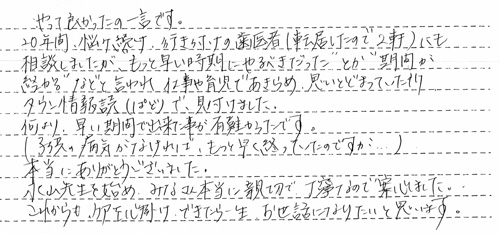 やって良かったの一言です。
20年間、悩み続け、行きつけの歯医者(転居したので2軒)にも
相談しましたが、もっと早い時期にやるべきだった”とか”期間が
経かる”などと言われ、仕事や育児であきらめ、思いとどまっていた
タウン情報誌(ぱど)で、見付けました。
何より、早い期間で出来た事が有難かったです。
(子供の病気がなければ、もっと早く終っていたのですが…)
本当にありがとうございました。
先生を始め、みなさん本当に親切で、丁寧なので安心しました。
これからも、宜しくできたら一生、お世話になりたいと思います。